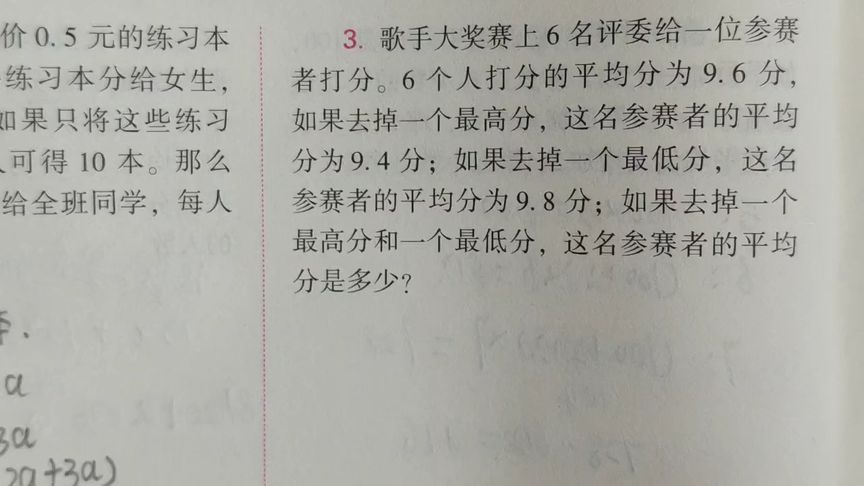 价 0.5 元的练习本
练习本分给女生,
如果只将这些练习
可得 10 本。那么
给全班同学, 每人
a
3a
2a+3a)
3. 歌手大奖赛上 6 名评委给一位参赛
者打分。6 个人打分的平均分为 9.6 分,
如果去掉一个最高分, 这名参赛者的平均
分为 9.4 分; 如果去掉一个最低分, 这名
参赛者的平均分为 9.8 分; 如果去掉一个
最高分和一个最低分, 这名参赛者的平均
分是多少?